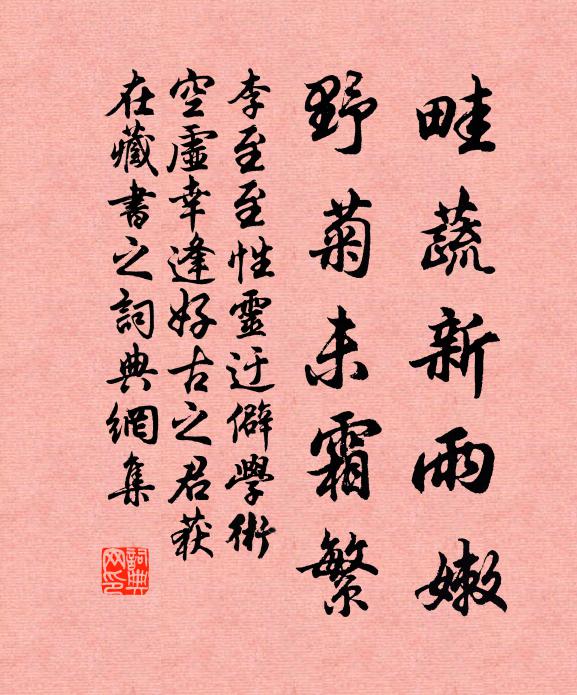 畦蔬新雨嫩
野菊未霜繁
李至至性靈迂僻學術
空虛幸逢好古之君获
在藏書之詞典網集
詞典
网印